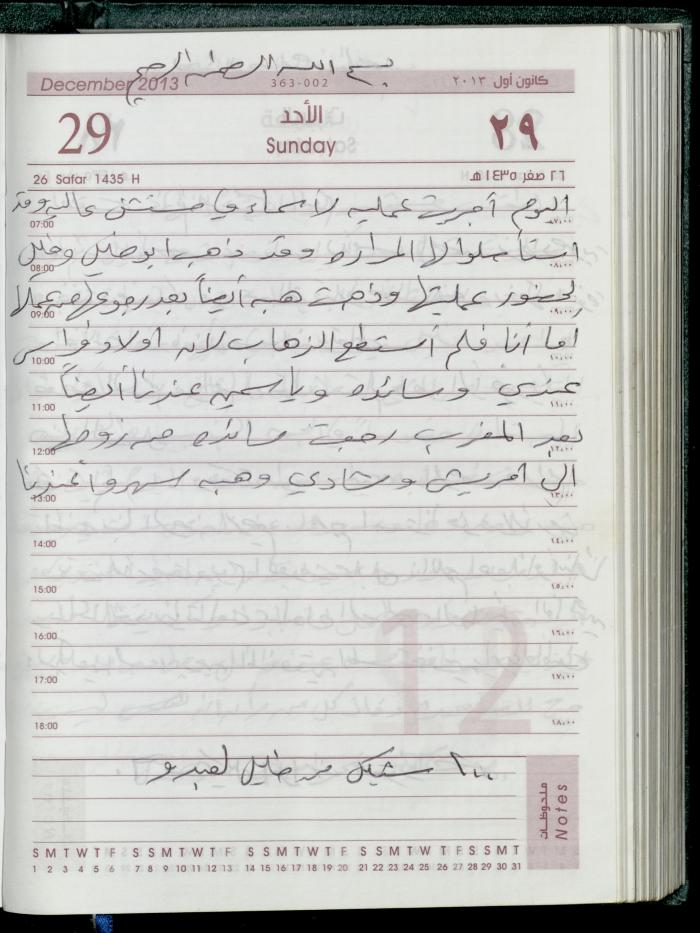 بسم الله الرحمن الرحيم
December 2013 363-002 كانون أول ٢٠١٣
29 الأحد ٢٩
Sunday
26 Safar 1435 H ٢٦ صفر ١٤٣٥ هـ
اليوم أجريت عمليه لأسماء في مستشفى عاليه وقد
07:00 ٠٧,٠٠
استأصلوا لها المراره وقد ذهب ابو خليل وخليل
08:00 ٠٨,٠٠
لحضور عمليتها وذهبت هبه أيضاً بعد رجوعها من عملها
09:00 ٠٩,٠٠
اما أنا فلم أستطع الذهاب لأن اولاد فراس
10:00 ١٠,٠٠
عندي وسائده وياسمين عندنا أيضاً
11:00 ١١,٠٠
بعد المغرب رجعت سائده من زوجها
12:00 ١٢,٠٠
الى وشادي وهبه سهروا عندنا
13:00 ١٣,٠٠
14:00 ١٤,٠٠
15:00 ١٥,٠٠
16:00 ١٦,٠٠
17:00 ١٧,٠٠
18:00 ١٨,٠٠
12
٢٠٠ شيكل من خليل
ملحوظات Notes
S M T W T F S S M T W T F S S M T W T F S S M T W T F S S M T
1 2 3 4 5 6 7 8 9 10 11 12 13 14 15 16 17 18 19 20 21 22 23 24 25 26 27 28 29 30 31